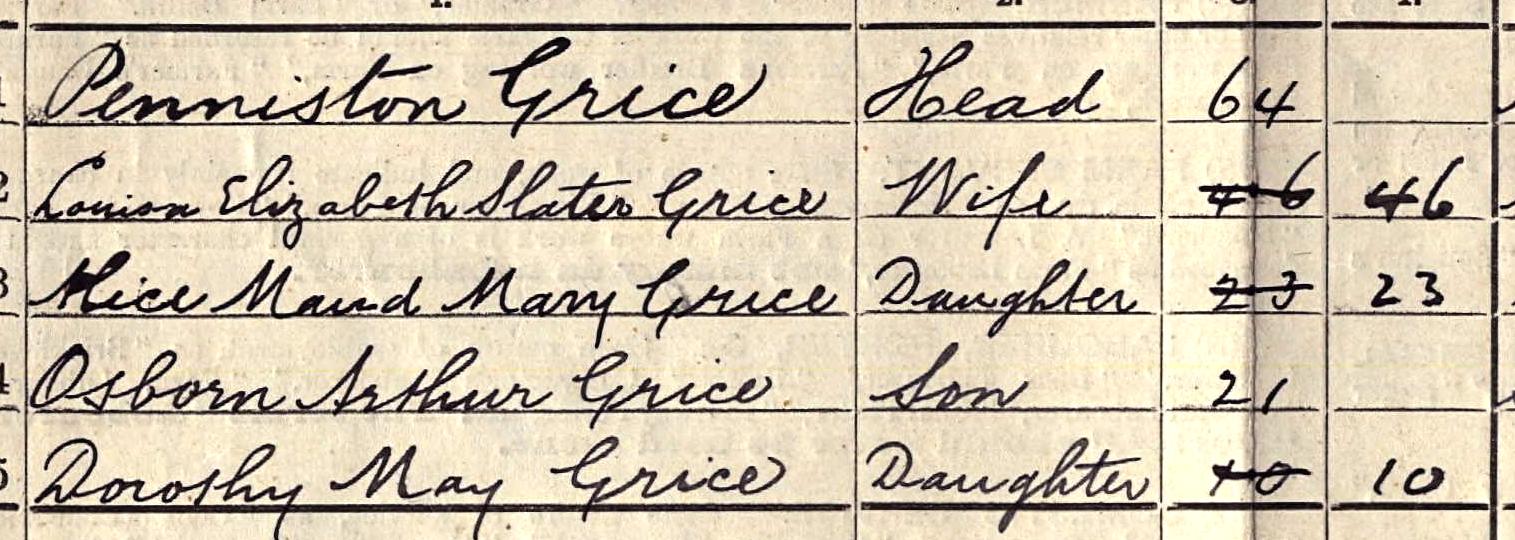 1 Penniston Grice Head 64
2 Louisa Elizabeth Slater Grice Wife 46 46
3 Alice Maud Mary Grice Daughter 23 23
4 Osborn Arthur Grice Son 21
5 Dorothy May Grice Daughter 10 10